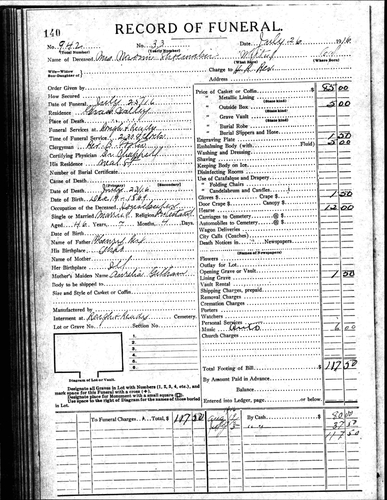 140
RECORD OF FUNERAL.
No. 942 No. 33 Date, July 26 1916
(Total Number) (Yearly Number)
Name of Deceased, Mrs. Naomi
(Where Born)
Wife—Where
Son—Daughter of
Charge to
Address
Order Given by
How Secured
Date of Funeral, July 23/16
Residence, Grass Valley
Place of Death
Funeral Services at Rough & Ready
Time of Funeral Service, 2:30 o'clock
Clergyman
Certifying Physician
His Residence
Number of Burial Certificate
Cause of Death
(Primary) (Secondary)
Date of Death July 22/16
Date of Birth, Dec 19 - 1869
Occupation of the Deceased, Housekeeper
Single or Married, Married Religion, Protestant
Aged, 46 Years, 7 Months, 4 Days
Date of Birth
Name of Father
His Birthplace
Name of Mother
Her Birthplace
Mother's Maiden Name,
Body to be shipped to
Size and Style of Casket or Coffin
Manufactured by
Interment at Rough & Ready Cemetery
Lot or Grave No. Section No.
1
2
3
4
5
Diagram of Lot or Vault.
Designate all Graves in Lot with Numbers (1, 2, 3, 4, etc.), and
mark space for this Funeral with a cross (+).
Designate place for Monument with a small square (□).
Use space to right of Diagram for names of those buried
in Lot.
Price of Casket or Coffin $85.00
" Metallic Lining
(State kind)
" Outside Box 5.00
(State kind)
" Grave Vault
(State kind)
" Burial Robe
(State kind)
" Burial Slippers and Hose
Engraving Plate 1.50
Embalming Body (with Fluid) 5.00
Washing and Dressing
Shaving
Keeping Body on Ice
Disinfecting Rooms
Use of Catafalque and Drapery
" Folding Chairs
" Candelabrums and Candles
Gloves $ Crape $ 1.50
Door Crape $ Canopy $
Hearse 12.00
Carriages to Cemetery @ $
Automobiles to Cemetery @ $
Wagon Deliveries
City Calls (Coaches)
Death Notices in Newspapers
(Names of Newspapers)
Flowers
Outlay for Lot
Opening Grave or Vault
Lining Grave or Vault 1.50
Vault Rental
Shipping Charges, prepaid
Removal Charges
Cremation Charges
Porters
Watchers
Personal Services
Music Auto 6.00
Church Charges
Total Footing of Bill $117.50
By Amount Paid in Advance
Balance
Entered into Ledger, page or below.
To Funeral Charges $117 50 By Cash $80 00
37 50
117 50